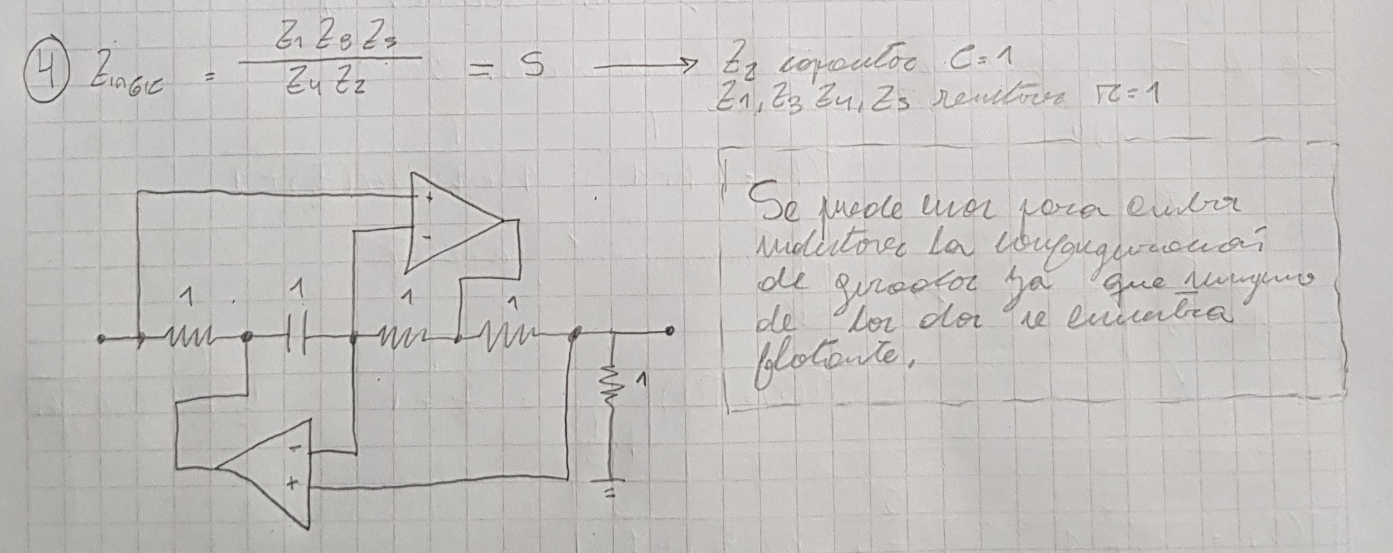 ④ Z_inGIC = Z1 Z3 Z5 / Z4 Z2 = S ⟶ Z2 capacitor C=1
Z1, Z3 Z4, Z5 resistores R=1
Se puede usar para ambos
inductores la configuración
de girador ya que ninguno
de los dos se encuentra
flotante.
+
-
1 1 1 1
1
-
+